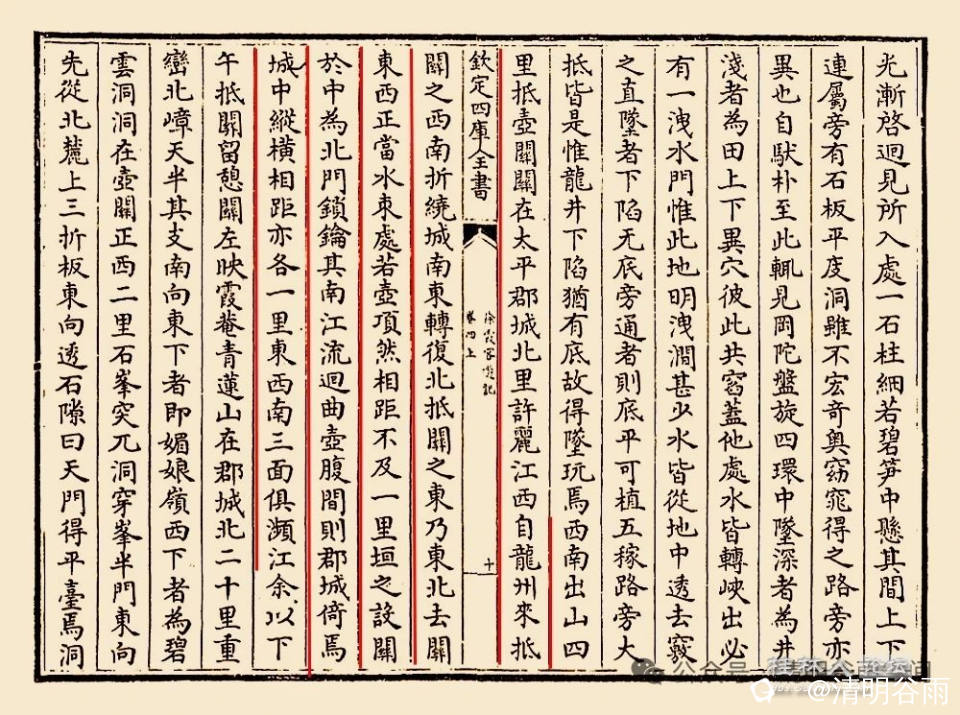 光漸啓迴見所入處一石柱細若碧笋中懸其間上下
連屬旁有石板平庋洞雖不宏奇奥窈窕得之路旁亦
異也自䭾朴至此輒見岡陀盤旋四環中墜深者為井
淺者為田上下異穴彼此共窞蓋他處水皆轉峽出必
有一洩水門惟此地明洩澗甚少水皆從地中透去竅
之直墜者下陷无底旁通者則底平可植五稼路旁大
抵皆是惟龍井下陷猶有底故得墜玩焉西南出山四
里抵壺關關在太平郡城北里許麗江西自龍州來抵
欽定四庫全書
徐霞客遊記
卷四上
十
關之西南折繞城南東轉復北抵關之東乃東北去關
東西正當水束處若壺項然相距不及一里垣之設關
於中為北門鎖鑰其南江流迴曲壺腹間則郡城倚焉
城中縱橫相距亦各一里東西南三面俱瀕江余以下
午抵關留憩關左映霞菴青蓮山在郡城北二十里重
巒北嶂天半其支南向東下者即媚娘嶺西下者為碧
雲洞洞在壺關正西二里石峯突兀洞穿峯半門東向
先從北麓上三折板東向透石隙曰天門得平臺焉洞
公众号
@清明谷雨